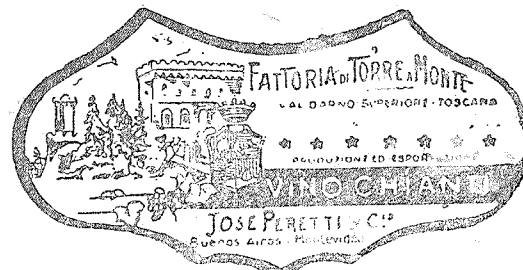 FATTORIA DI TORRE A MONTE
VAL DARNO SUPERIORE · TOSCANA
PRODUZIONE ED ESPORTAZIONE
VINO CHIANTI
JOSE PERETTI y Cía
Buenos Aires · Montevideo